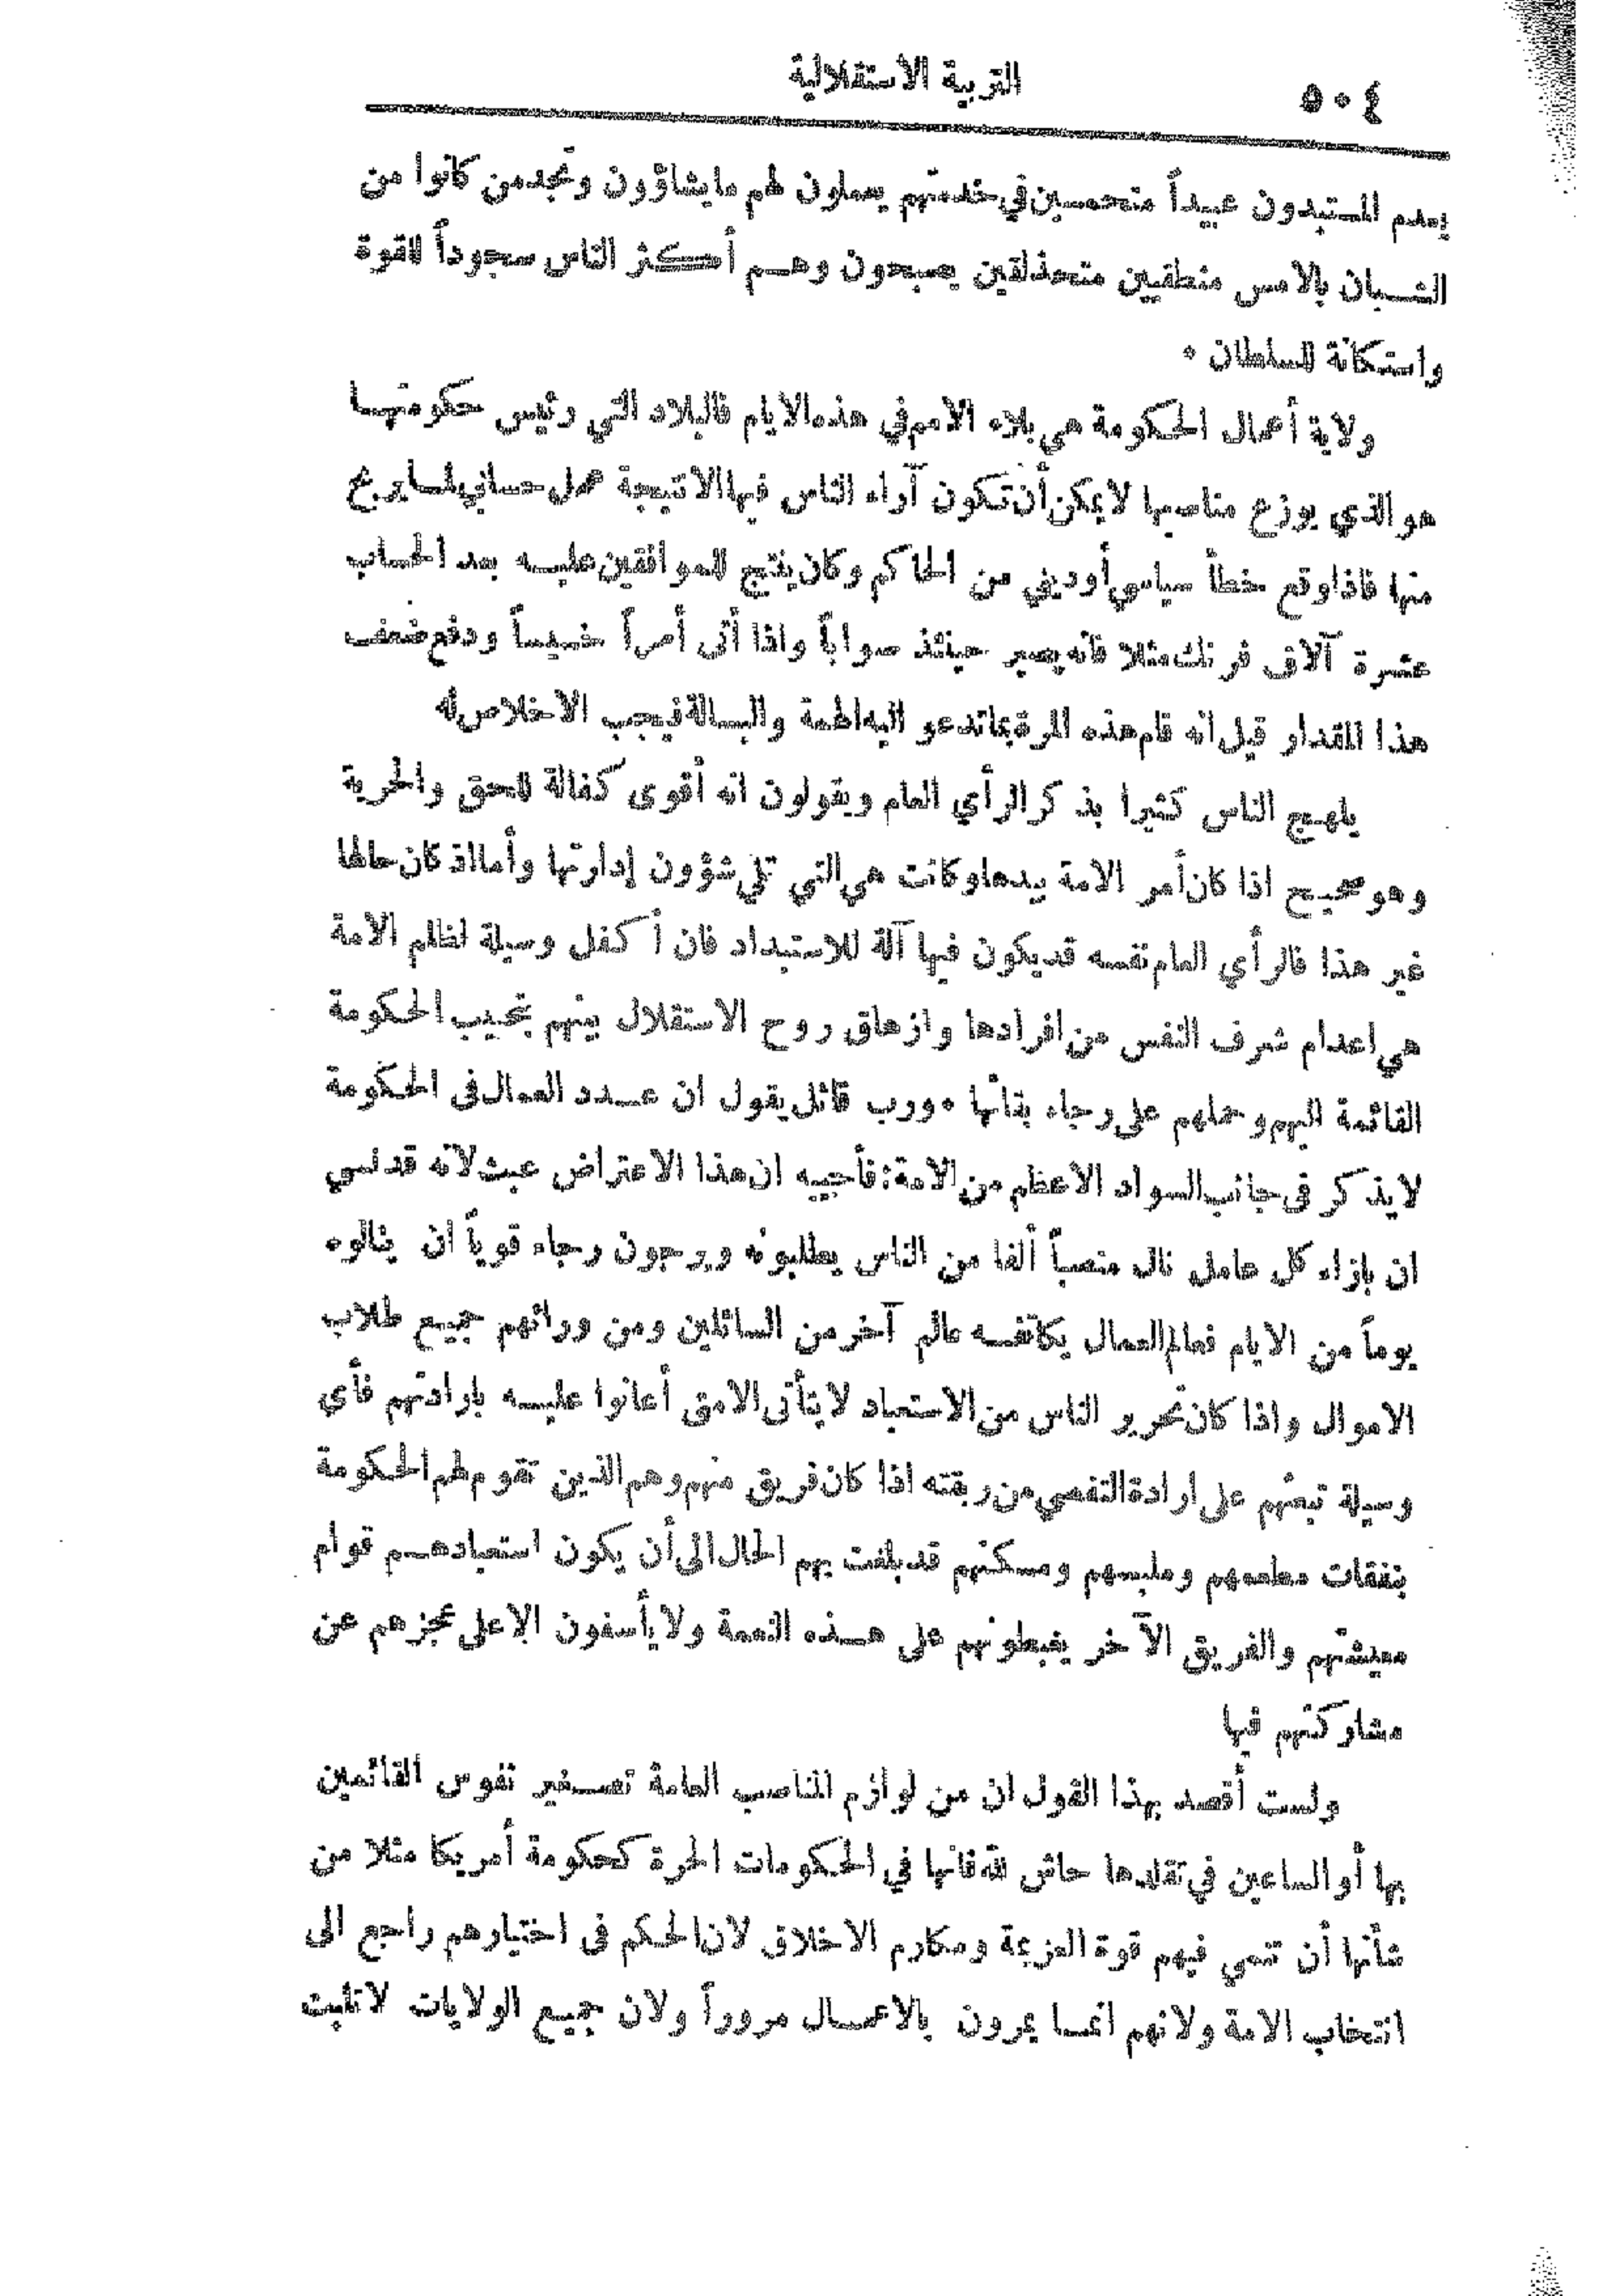 ٥٠٤
التربية الاستقلالية
يعدم المستبدون عبيداً متحمسين في خدمتهم يعملون لهم ما يشاؤون وتجد من كانوا من
الشبان بالامس منطقيين متحذلقين يصبحون وهم أكثر الناس سجوداً للقوة
واستكانة للسلطان ٠
ولاية أعمال الحكومة هي بلاء الامم في هذه الايام فالبلاد التي رئيس حكومتها
هو الذي يوزع مناصبها لا يمكن أن تكون آراء الناس فيها الا نتيجة عمل حسابي لما يربح
منها فاذا وقع خطأ سياسي أو ديني من الحاكم وكان ينتج للموافقين عليه بعد الحساب
عشرة آلاف فرنك مثلا فانه يصير حينئذ صواباً واذا أتى أمراً خسيساً ودفع ضعف
هذا المقدار قيل انه قام هذه المرة بما تدعو اليه الهمة والبسالة فيجب الاخلاص له
يلهج الناس كثيرا بذكر الرأي العام ويقولون انه أقوى كفالة للحق والحرية
وهو صحيح اذا كان أمر الامة بيدها وكانت هي التي تلي شؤون إدارتها وأما اذ كان حالها
غير هذا فالرأي العام نفسه قد يكون فيها آلة للاستبداد فان أكفل وسيلة لظلم الامة
هي اعدام شرف النفس من افرادها وازهاق روح الاستقلال بينهم بتحبيب الحكومة
القائمة اليهم وحملهم على رجاء بقائها ٠ ورب قائل يقول ان عدد العمال في الحكومة
لا يذكر في جانب السواد الاعظم من الامة : فأجيبه ان هذا الاعتراض عبث لانه قد نسي
ان بازاء كل عامل نال منصباً ألفا من الناس يطلبونه ويرجون رجاء قوياً ان ينالوه
يوماً من الايام فعالم العمال يكاتفه عالم آخر من السائلين ومن ورائهم جميع طلاب
الاموال واذا كان تحرير الناس من الاستعباد لا يتأتى الا متى أعانوا عليه بارادتهم فأي
وسيلة تبعثهم على ارادة التفصي من ربقته اذا كان فريق منهم وهم الذين تقوم لهم الحكومة
بنفقات مطعمهم وملبسهم ومسكنهم قد بلغت بهم الحال الى أن يكون استعبادهم قوام
معيشتهم والفريق الآخر يغبطونهم على هذه النعمة ولا يأسفون الا على عجزهم عن
مشاركتهم فيها
ولست أقصد بهذا القول ان من لوازم المناصب العامة تصغير نفوس القائمين
بها أو الساعين في تقلدها حاش لله فانها في الحكومات الحرة كحكومة أمريكا مثلا من
شأنها أن تنمي فيهم قوة العزيمة ومكارم الاخلاق لان الحكم في اختيارهم راجع الى
انتخاب الامة ولانهم انما يمرون بالاعمال مروراً ولان جميع الولايات لا تلبث